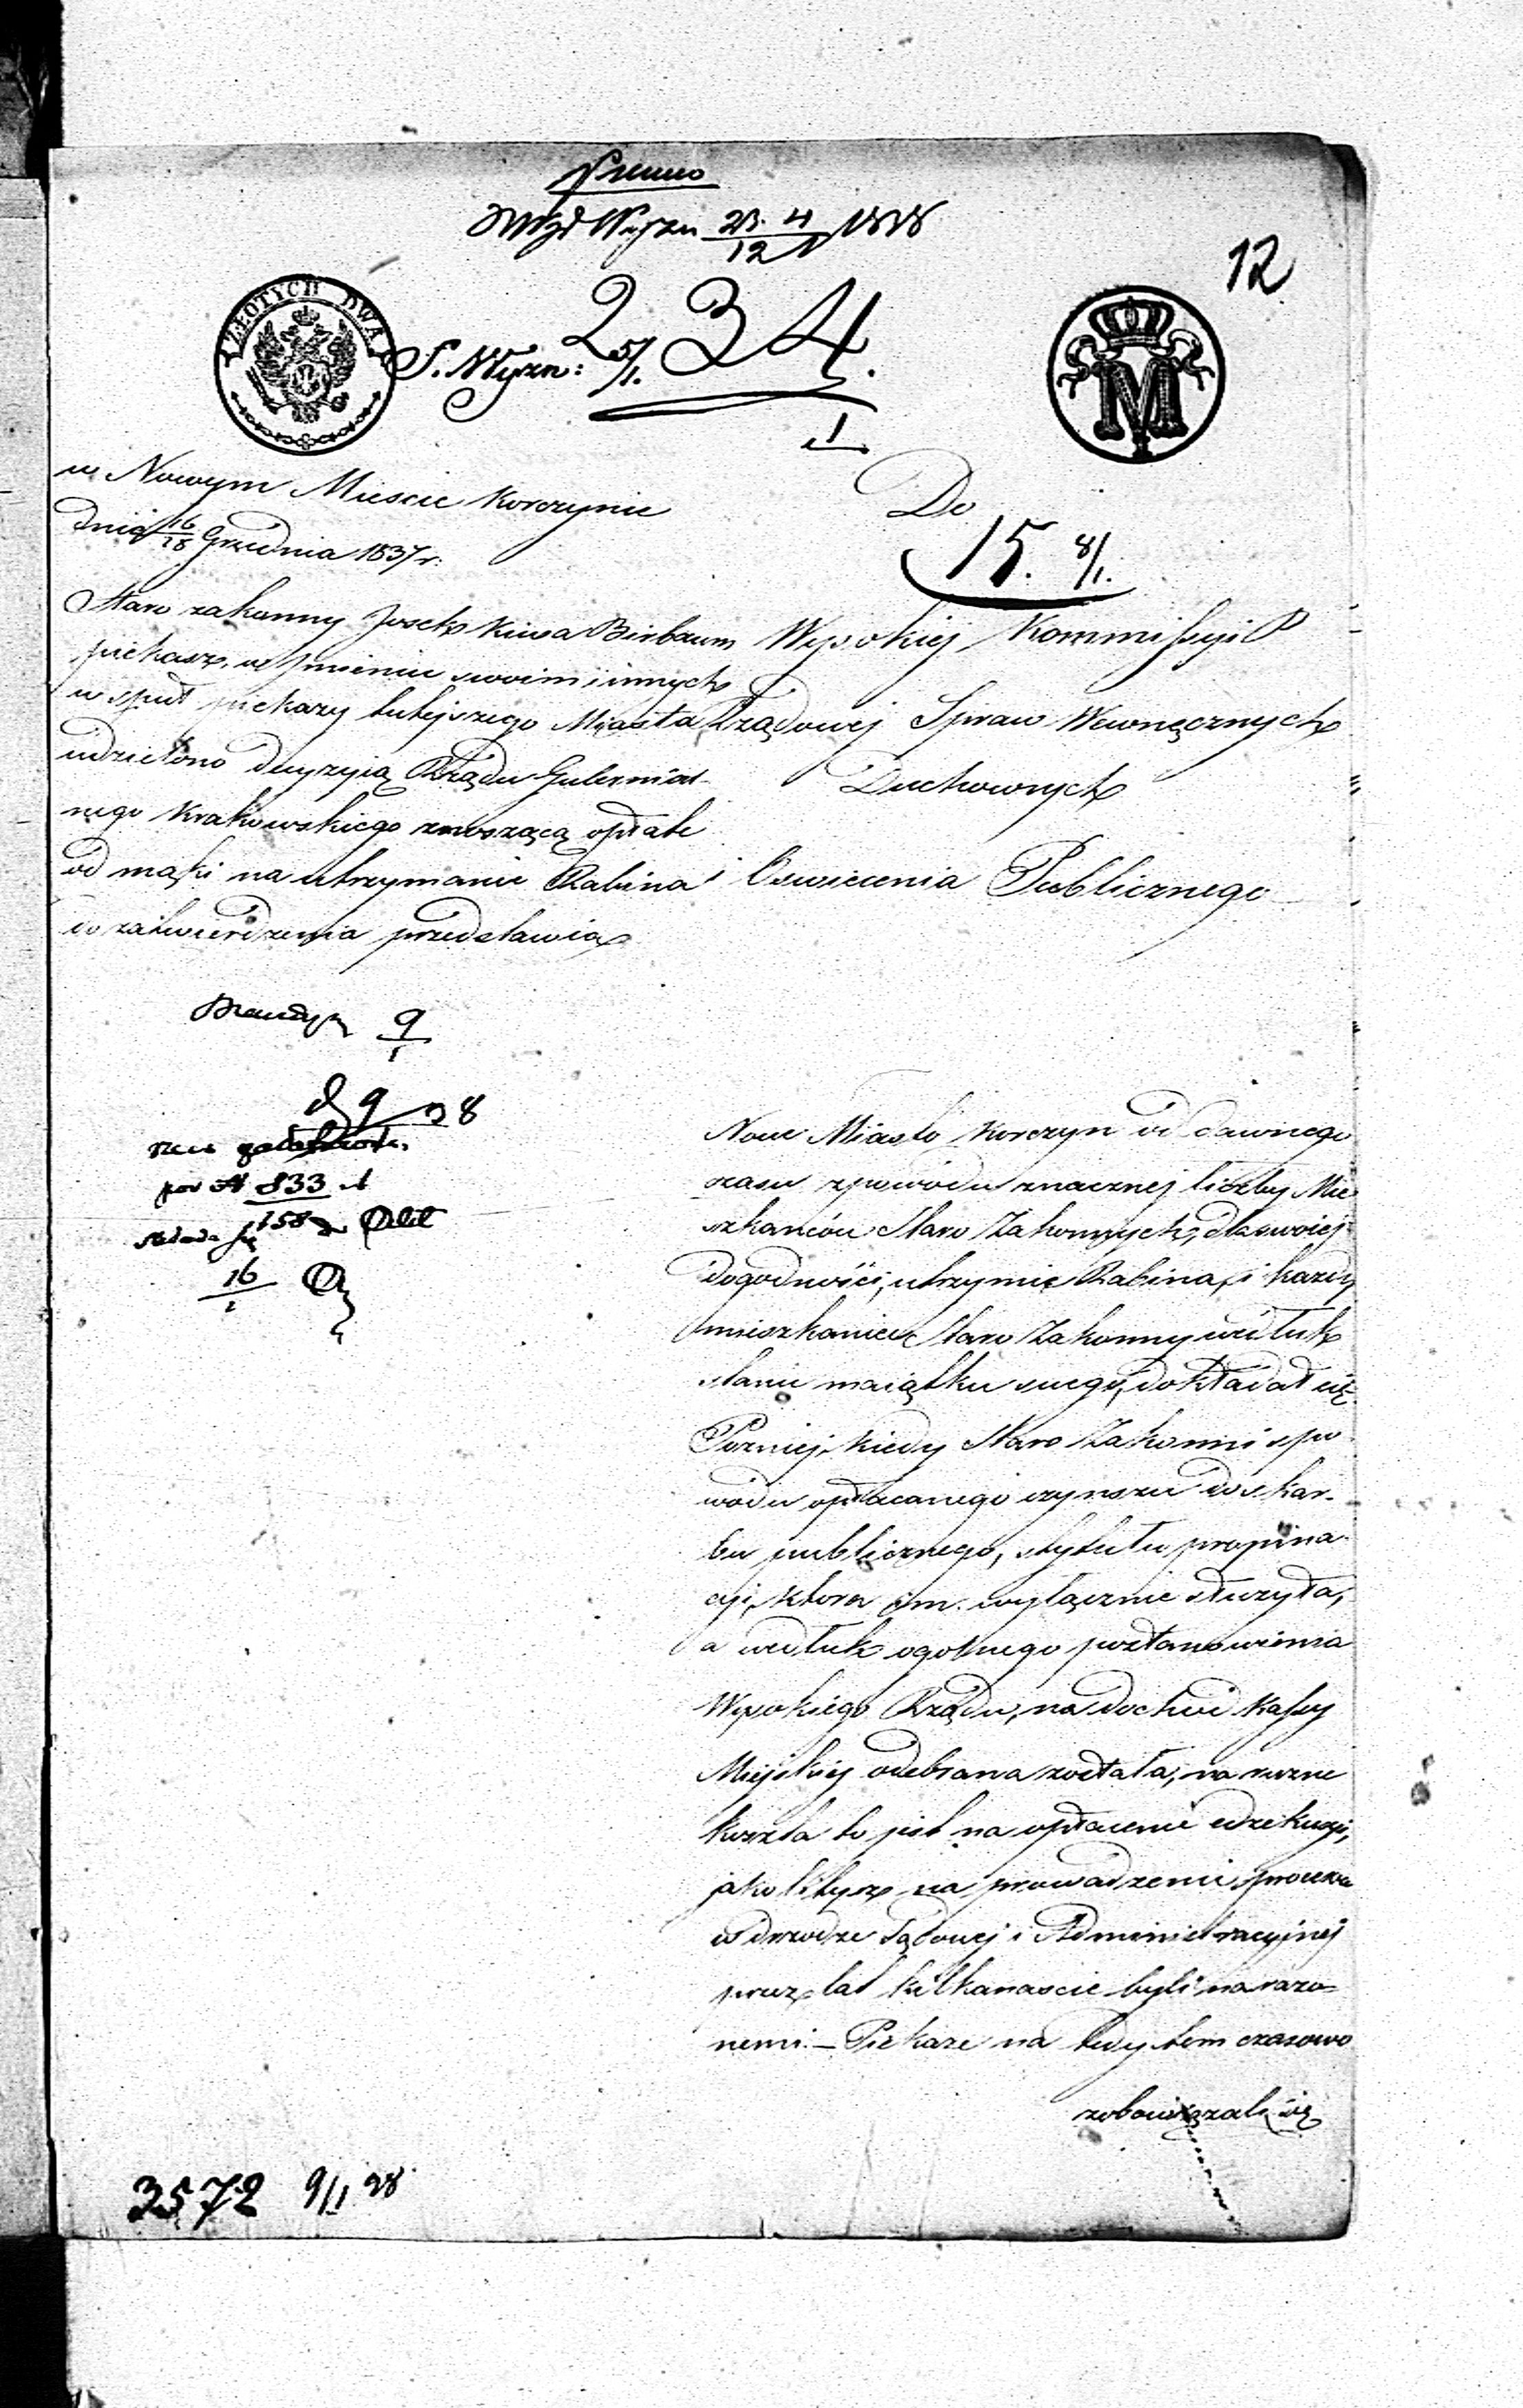 12
ZŁOTYCH DWA
S. Wyzn: 5/1. 234.
1
M
w Nowym Miescie Korczynie
dnia 16/28 Grudnia 1837 r.
Do
15. 8/1.
Staro zakonny Josek Birbaum
piekarz, w Imieniu swoim i innych
w spuł piekarzy tutejszego Miasta
udzielono decyzyią Rządu Gubernial-
nego Krakowskiego znoszącą opłate
od mąki na utrzymanie Rabina
do zatwierdzenia przedstawia
Wysokiej Kommissyi
Rządowej Spraw Wewnęcznych
Duchownych
i Oswiecenia Publicznego
9/1
833
158
16
Nowe Miasto Korczyn od dawnego
czasu z powodu znacznej liczby Mie
szkańców Staro Zakonnych, dla swoiej
dogodności, utrzymie Rabina, i kazdy
mieszkaniec Staro Zakonny wedluk
stanu maiątku swego, dokładał się.
Pozniej kiedy Staro Zakonni z po
wodu opłacanego czynszu do skar-
bu publicznego, z tytułu propina
cyi, ktora im wyłącznie słuzyła,
a wedłuk ogolnego postanowienia
Wysokiego Rządu, na dochod Kassy
Miejskiej odebrana została, na rozne
koszta to jest na opłacenie edzekucyi,
jako litysz na prowadzenie procesu
w drodze Sądowej i Administracyjnej
przez lat kilkanascie byli narazo=
nemi. – Piekarze na tedy tem czasowo
zobowiązali się
3572 9/1 38